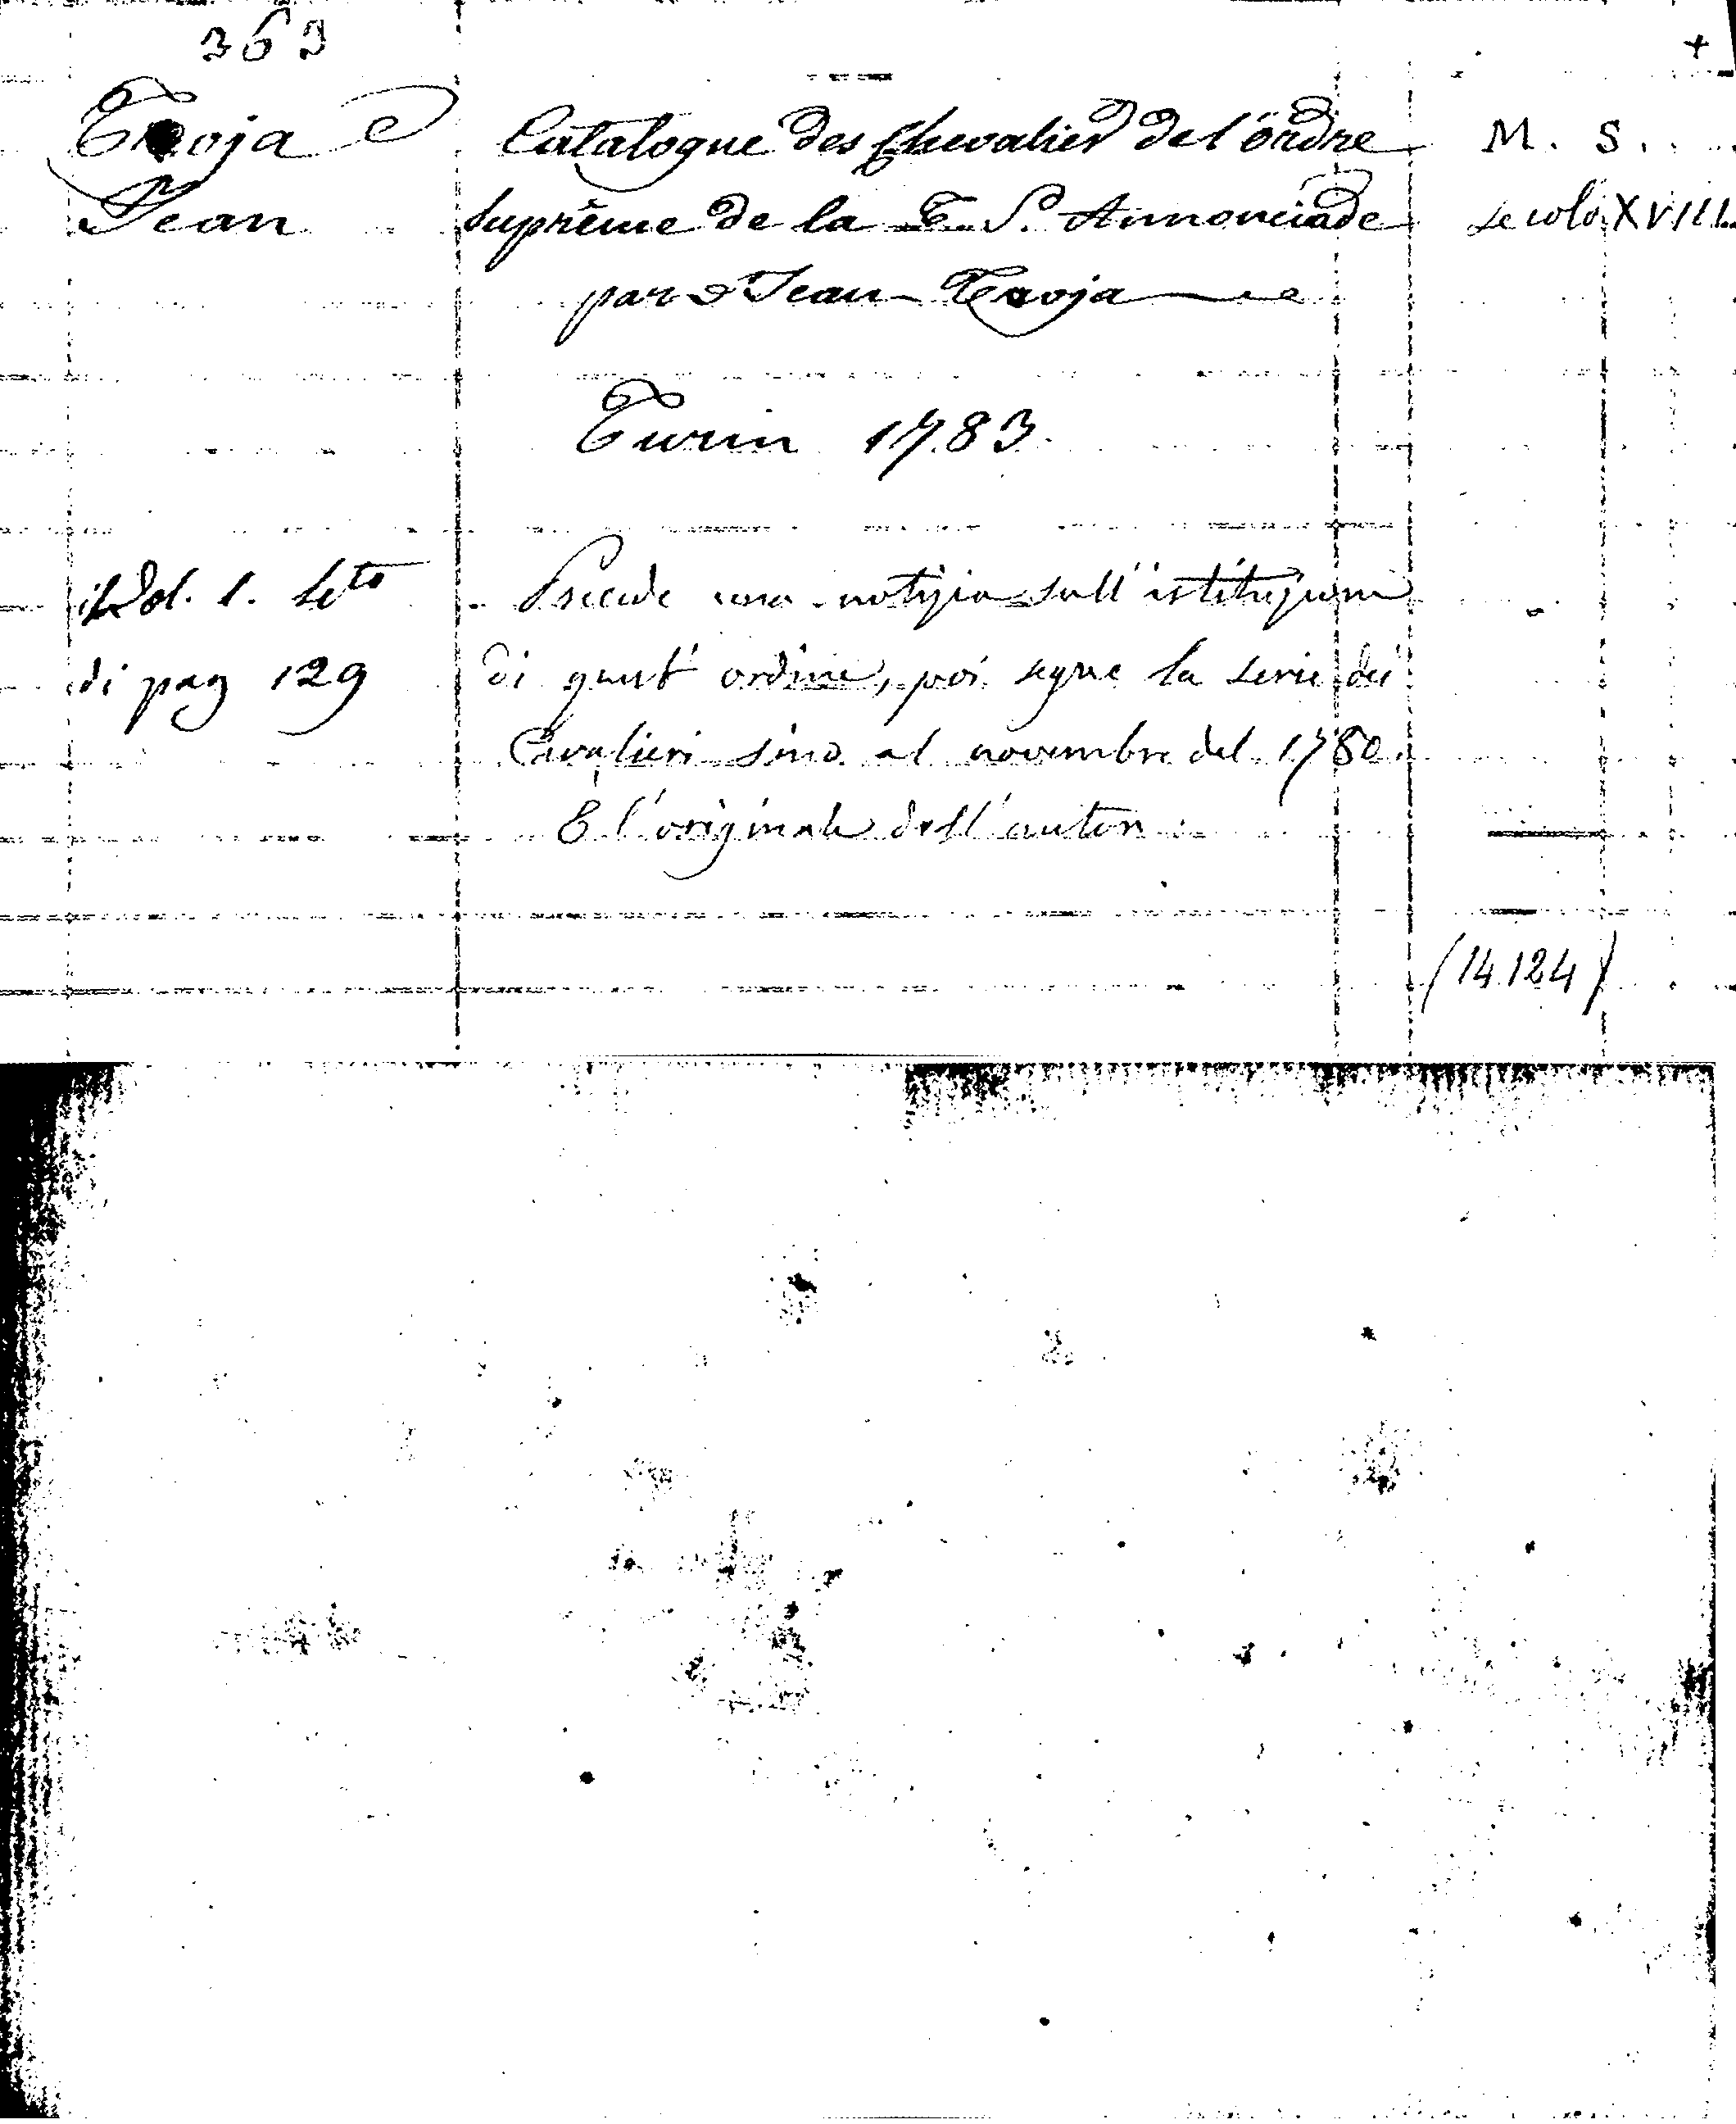 363
+
Troja
Jean
Catalogue des Chevalier de l'ordre
suprême de la T. S. Annonciade
par Jean Troja
Turin 1783.
M. S.
secolo XVIII.
Vol. 1. leto
di pag 129
Precede una notizia sull'istituzione
di quest'ordine, poi segue la serie dei
Cavalieri sino al novembre del 1780.
È l'originale dell'autore.
(14.124)